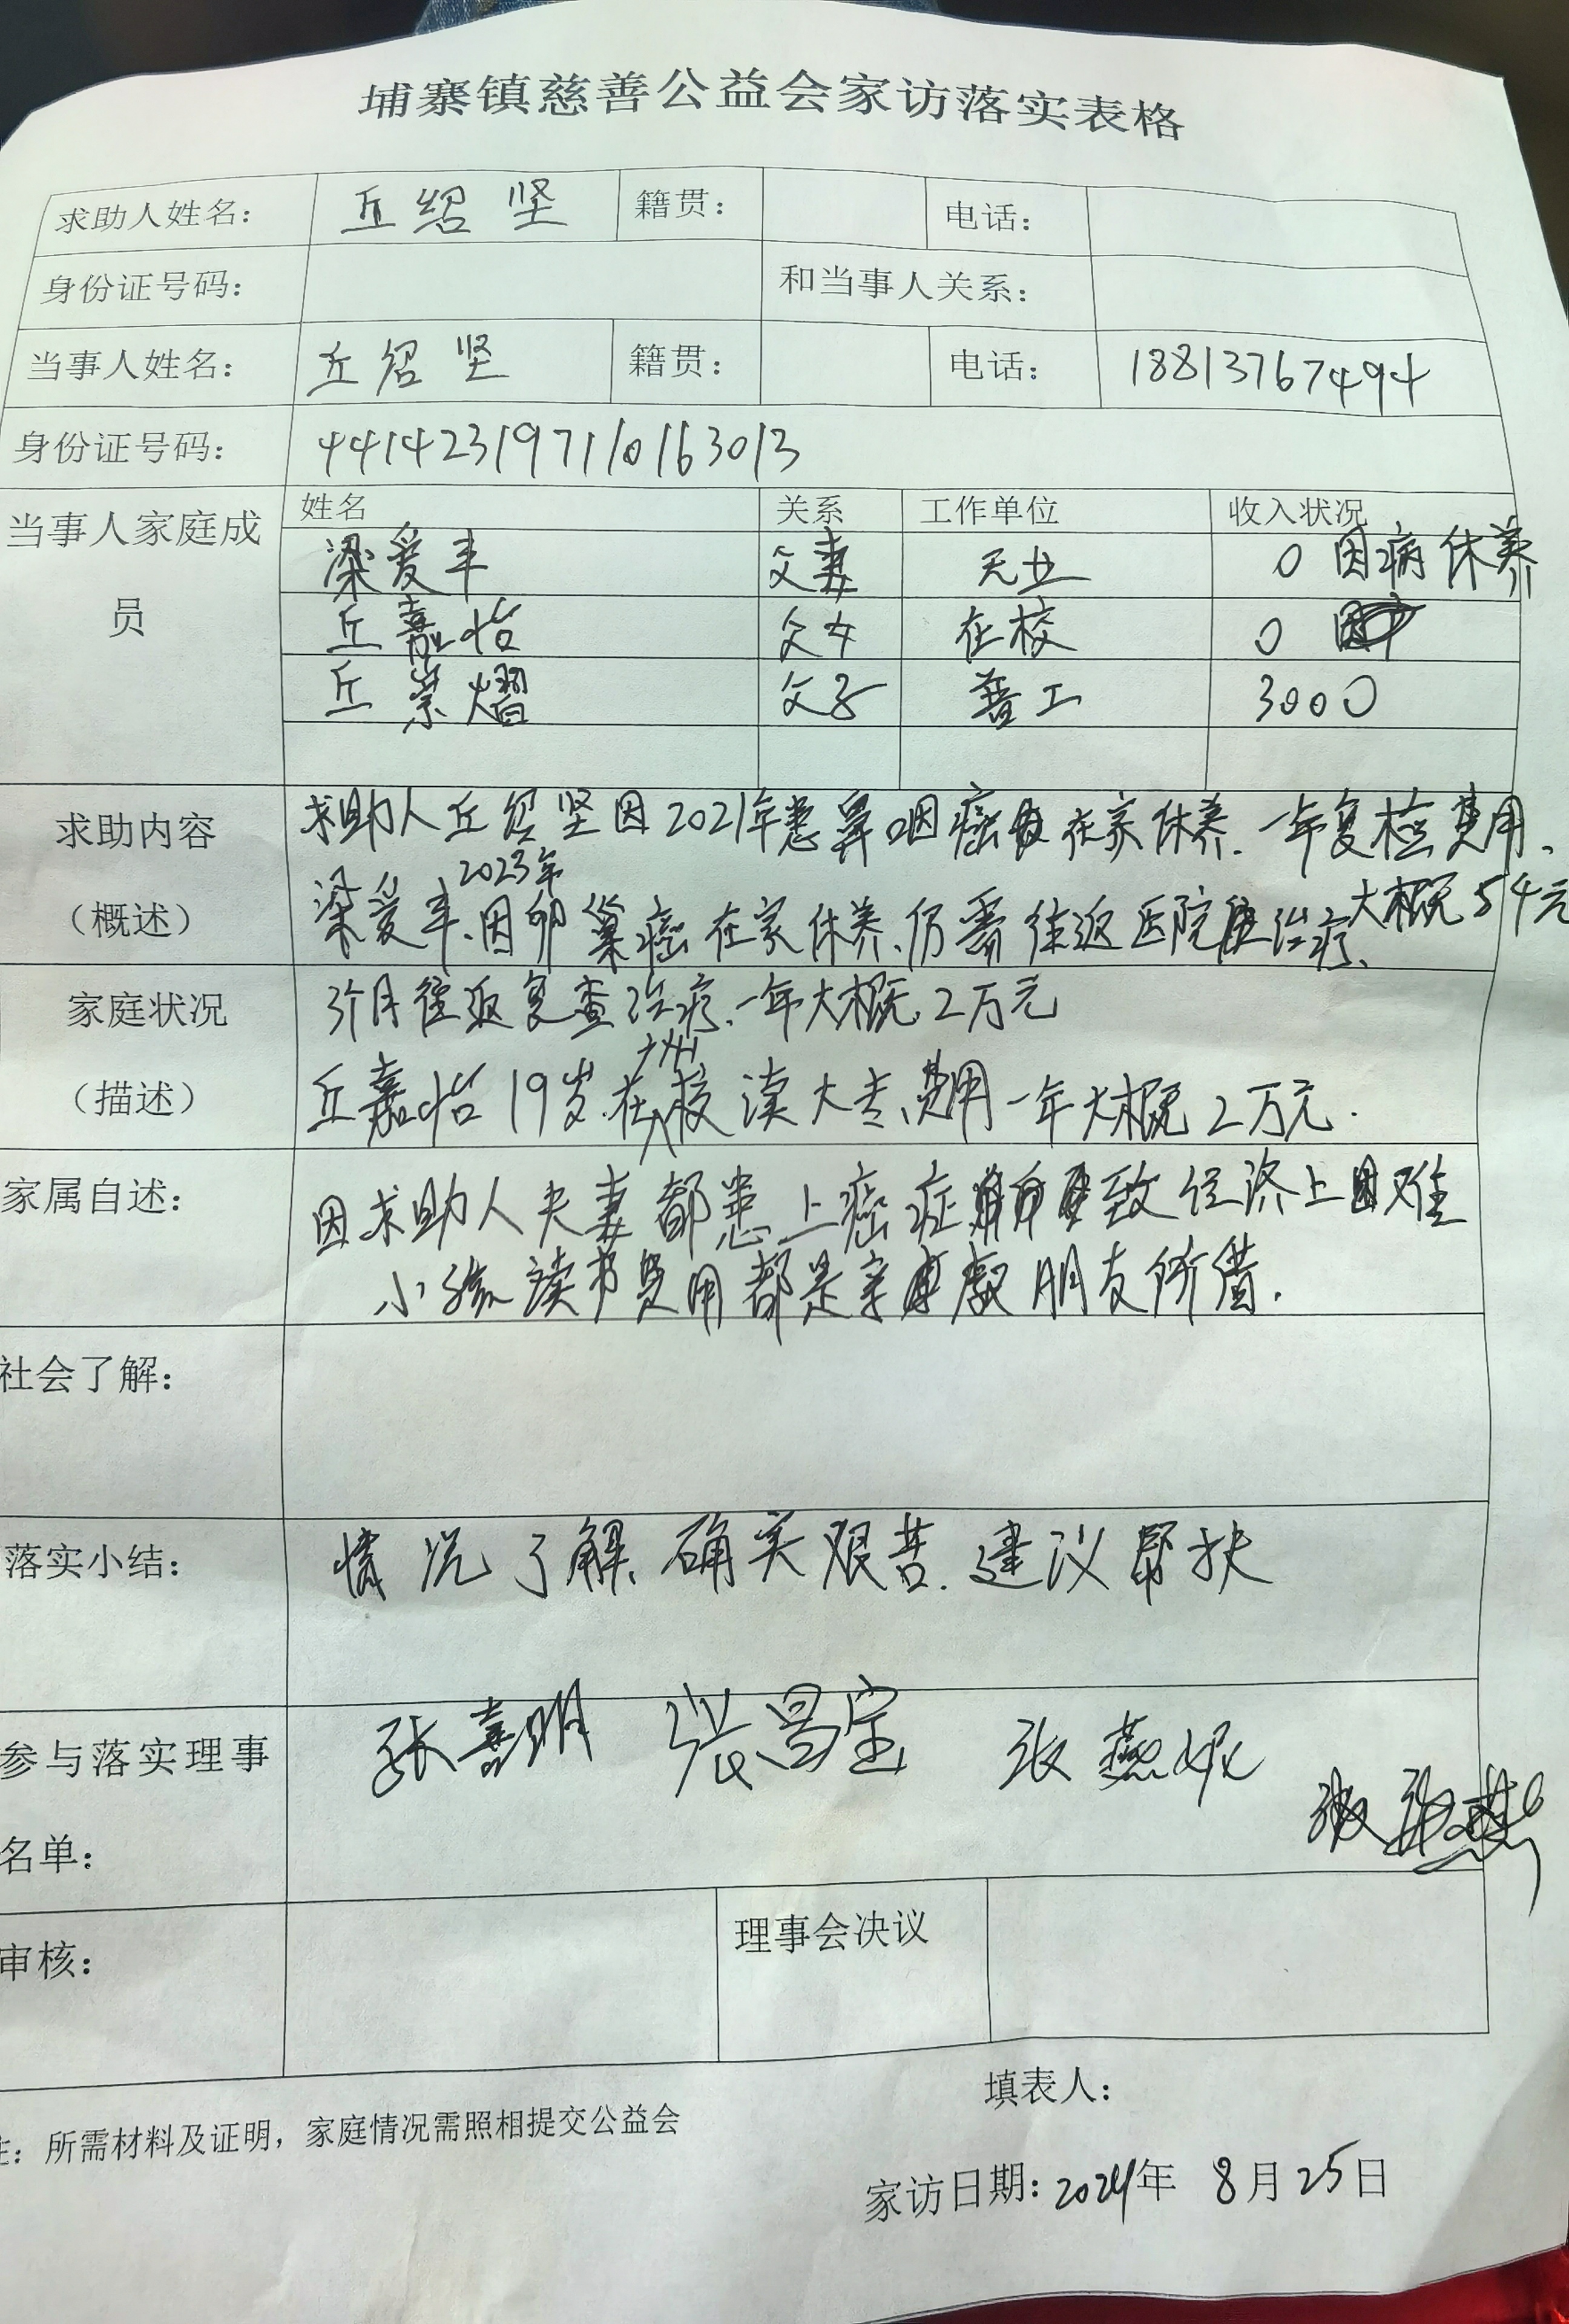 埔寨镇慈善公益会家访落实表格
求助人姓名： 丘绍坚 籍贯： 电话：
身份证号码： 和当事人关系：
当事人姓名： 丘绍坚 籍贯： 电话： 18813767494
身份证号码： 441423197110163013
当事人家庭成员 姓名 关系 工作单位 收入状况
梁爱丰 父妻 无业 0 因病休养
丘嘉怡 父女 在校 0
丘崇熠 父子 普工 3000
求助内容 求助人丘绍坚因2021年患鼻咽癌在家休养.一年复检费用、
大概5千元
（概述） 梁爱丰、2023年因卵巢癌在家休养、仍需往返医院治疗、
家庭状况 3个月往返复查治疗、一年大概2万元
（描述） 丘嘉怡19岁.在广州校读大专、费用一年大概2万元.
家属自述： 因求助人夫妻都患上癌症 致经济上困难
小孩读书费用都是亲戚朋友所借.
社会了解：
落实小结： 情况了解、确实艰苦.建议帮扶
参与落实理事名单： 张嘉明 张昌宝 张燕妮
审核： 理事会决议
填表人：
注：所需材料及证明，家庭情况需照相提交公益会
家访日期：2024年 8月25日